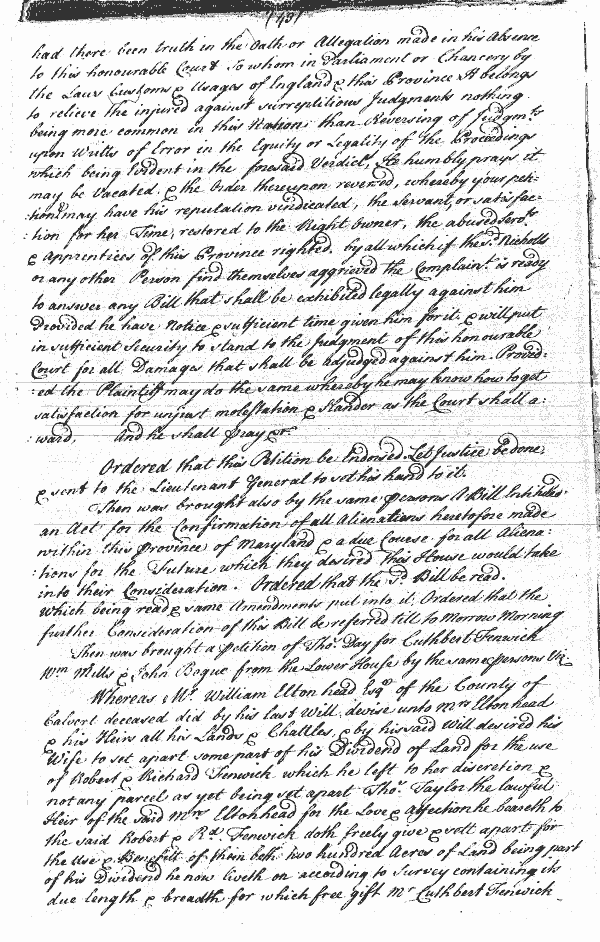 (43)
had there been truth in the Oath or Allegation made in his Absence
to this honourable Court To whom in Parliament or Chancery by
the Laws Customs & Usages of England & this Province It belongs
to relieve the injured against surreptitious Judgments nothing
being more common in this Nation than Reversing of Judgmts
upon Writts of Error in the Equity or Legality of the Proceedings
which being Evident in the foresaid Verdict, He humbly prays it
may be Vacated, & the Order thereupon reversed, whereby your peti-
:tionr may have his reputation vindicated, the Servant, or satisfac=
:tion for her Time, restored to the Right Owner, the abused Servts
& Apprentices of this Province righted. by all which if the sd Nicholls
or any other Person find themselves aggrieved the Complaint is ready
to answer any Bill that shall be exhibited legally against him
Provided he have Notice & sufficient time given him for it & will put
in sufficient Security to stand to the Judgment of this honourable
Court for all Damages that shall be adjudged against him. Provid:
:ed the Plaintiff may do the same whereby he may know how to get
satisfaction for unjust molestation & Slander as the Court shall a:
:ward, And he shall pray &c
Ordered that this Petition be Endorsed. Let Justice be done,
& sent to the Lieutenant General to set his hand to it.
Then was brought also by the same persons A Bill Entituled
an Act for the Confirmation of all Alienations heretofore made
within this Province of Maryland & a due Course for all Aliena:
:tions for the Future which they desired this House would take
into their Consideration. Ordered that the sd Bill be read.
Which being read & some Amendments put into it, Ordered that the
further Consideration of this Bill be referred till to Morrow Morning
Then was brought a Petition of Thos Day for Cuthbert Fenwick
Wm Mills & John Bogue from the Lower House by the same persons Viz
Whereas Mr William Elton head Esqr of the County of
Calvert deceased did by his last Will, devise unto Mrs Elton head
& his Heirs all his Lands & Chattles, & by his said Will desired his
Wife to set apart some part of his Dividend of Land for the use
of Robert & Richard Fenwick which he left to her discretion &
not any parcel as yet being set apart Thos Taylor the lawful
Heir of the said Mrs Eltonhead for the Love & Affection he beareth to
the said Robert & Rd Fenwick doth freely give & sett apart for
the Use & Benefitt of them both two hundred Acres of Land being part
of his Dividend he now liveth on according to Survey containing its
due length & breadth for which free gift Mr Cuthbert Fenwick